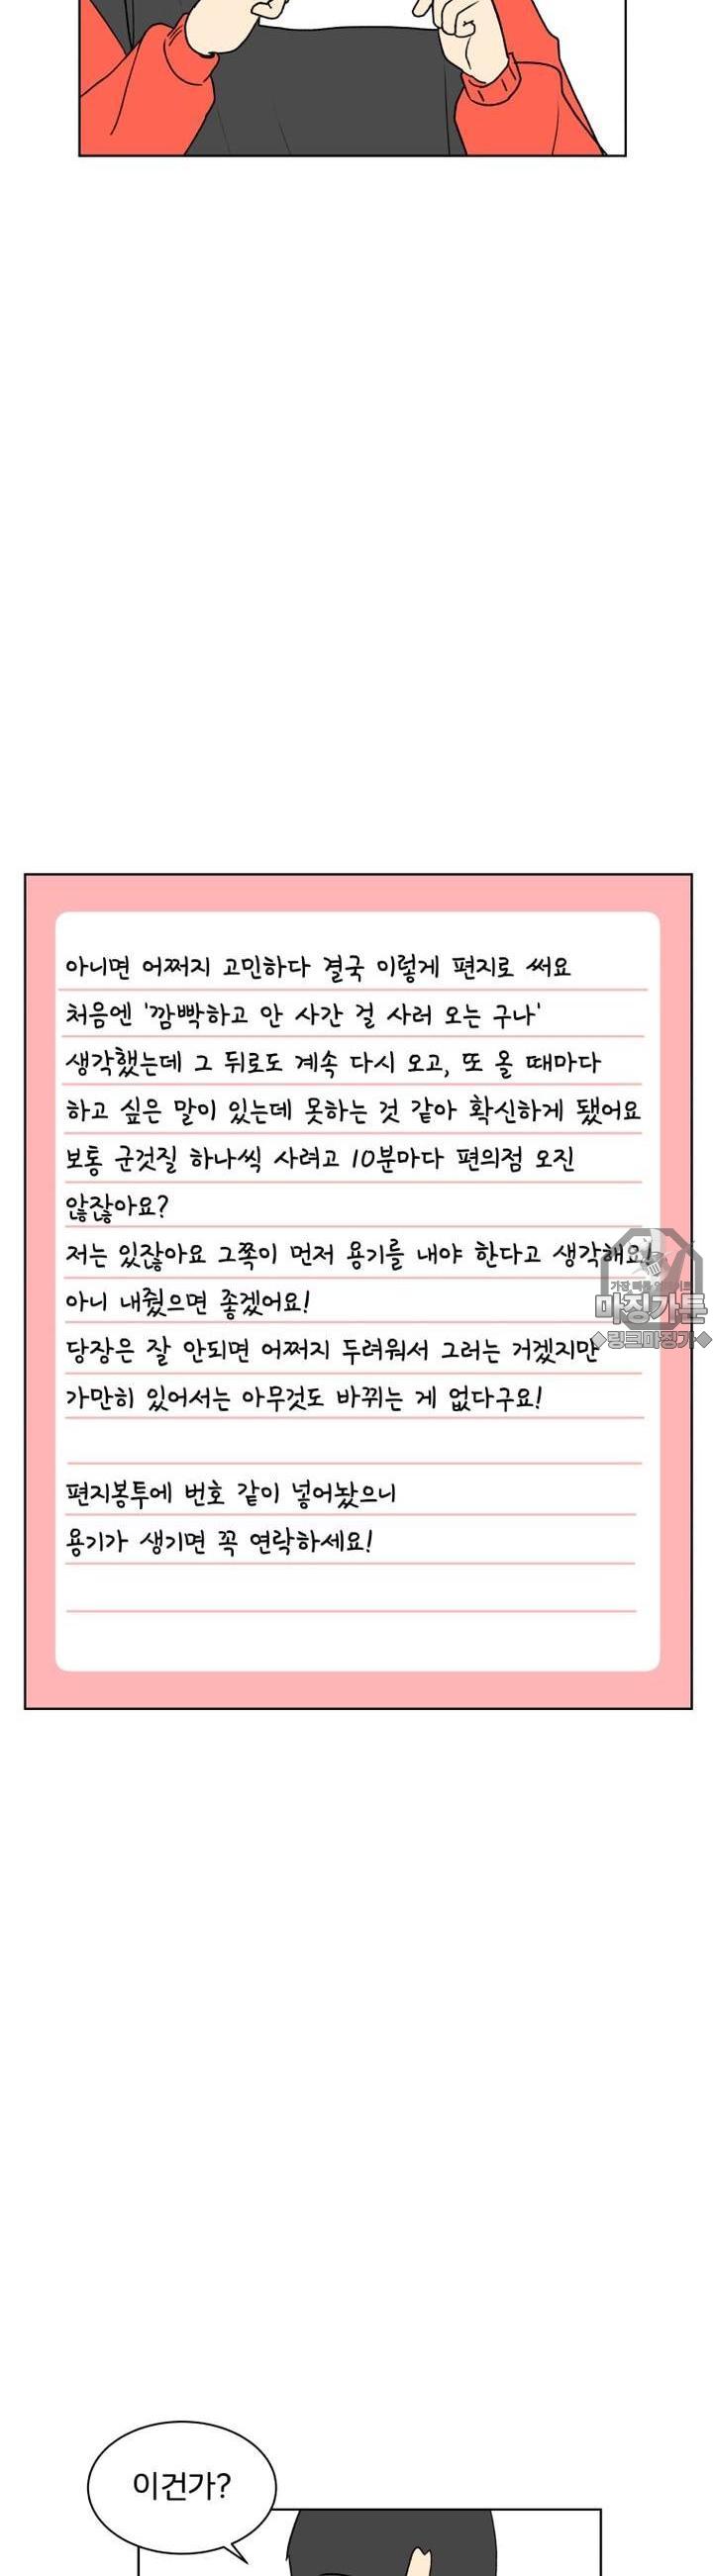 아니면 어쩌지 고민하다 결국 이렇게 편지로 써요
처음엔 '깜빡하고 안 사간 걸 사러 오는 구나'
생각했는데 그 뒤로도 계속 다시 오고, 또 올 때마다
하고 싶은 말이 있는데 못하는 것 같아 확신하게 됐어요
보통 군것질 하나씩 사려고 10분마다 편의점 오진
않잖아요?
저는 있잖아요 그쪽이 먼저 용기를 내야 한다고 생각해요!
아니 내줬으면 좋겠어요!
당장은 잘 안되면 어쩌지 두려워서 그러는 거겠지만
가만히 있어서는 아무것도 바뀌는 게 없다구요!
편지봉투에 번호 같이 넣어놨으니
용기가 생기면 꼭 연락하세요!
마징가툰
◆링크마징가◆
이건가?